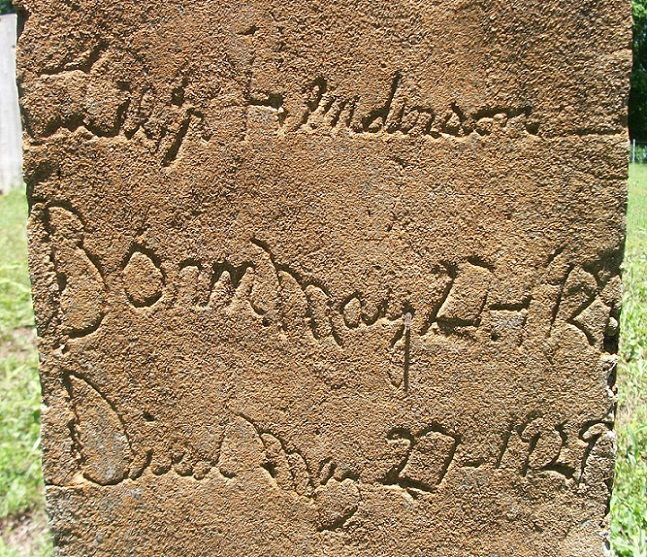 Henderson
Born May 27
Died May 27-1929